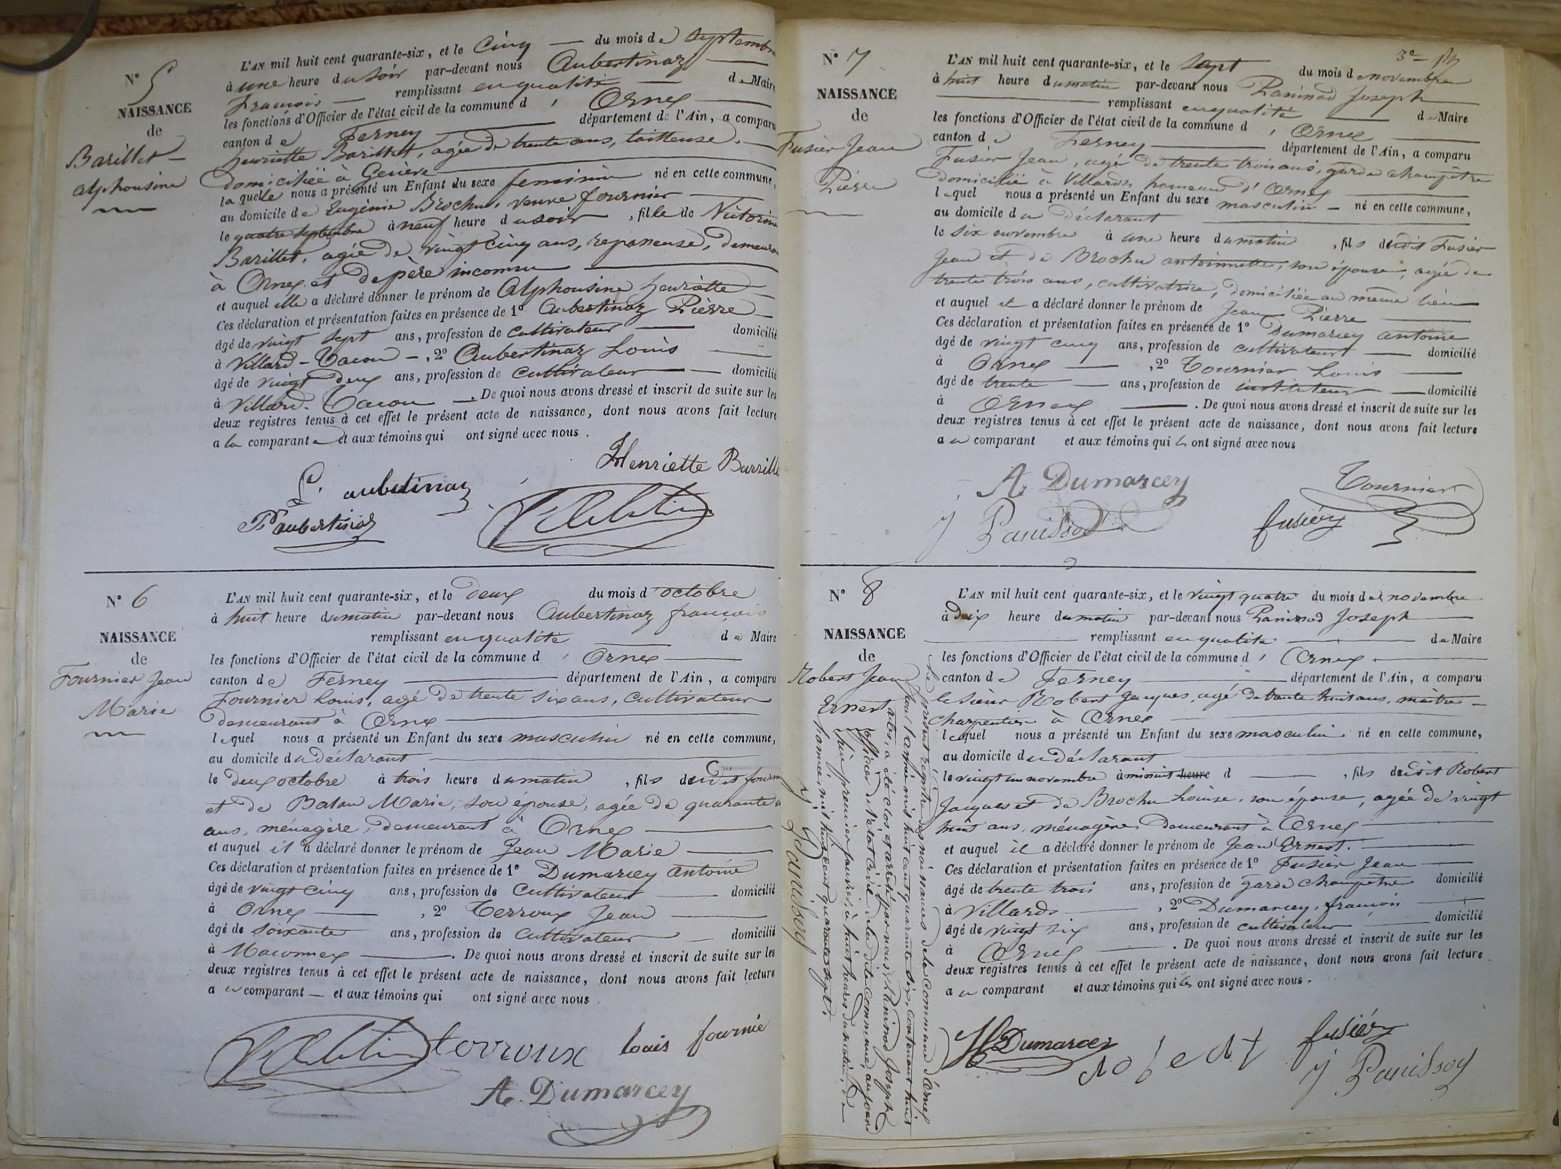 N° 5
NAISSANCE
de
Barillet
alphonsine
L'AN mil huit cent quarante-six, et le Cinq du mois de Septembre
à une heure du soir par-devant nous Aubertinaz
François remplissant en qualité de Maire
les fonctions d'Officier de l'état civil de la commune d' Ornex
canton de Ferney département de l'Ain, a comparu
henriette Barillet, agée de trente ans, tailleuse,
domiciliée à Genève
laquelle nous a présenté un Enfant du sexe feminin né en cette commune,
au domicile de Eugénie Brochu, veuve fournier
le quatre septembre à neuf heure du soir, fille de Victorine
Barillet, agée de vingt cinq ans, repasseuse, demeurant
à Ornex et de père inconnu
et auquel elle a déclaré donner le prénom de Alphonsine henriette
Ces déclaration et présentation faites en présence de 1° Aubertinaz Pierre
âgé de vingt sept ans, profession de cultivateur domicilié
à Villard-Tacon, 2° Aubertinaz Louis
âgé de vingt deux ans, profession de cultivateur domicilié
à Villard-Tacon. De quoi nous avons dressé et inscrit de suite sur les
deux registres tenus à cet effet le présent acte de naissance, dont nous avons fait lecture
a la comparante et aux témoins qui ont signé avec nous.
Henriette Barrille
L. aubertinaz
P. aubertinaz
N° 6
NAISSANCE
de
Fournier Jean
Marie
L'AN mil huit cent quarante-six, et le deux du mois d'octobre
à huit heure du matin par-devant nous Aubertinaz françois
remplissant en qualité de Maire
les fonctions d'Officier de l'état civil de la commune d' Ornex
canton de Ferney département de l'Ain, a comparu
Fournier Louis, agé de trente six ans, cultivateur
demeurant à Ornex
lequel nous a présenté un Enfant du sexe masculin né en cette commune,
au domicile du déclarant
le deux octobre à trois heure du matin, fils dudit fourni
et de Balan Marie, son épouse, agée de quarante
ans, ménagère, demeurant à Ornex
et auquel il a déclaré donner le prénom de Jean Marie
Ces déclaration et présentation faites en présence de 1° Dumarcey antoine
âgé de vingt cinq ans, profession de cultivateur domicilié
à Ornex, 2° Terroux Jean
âgé de soixante ans, profession de cultivateur domicilié
à Maconnex. De quoi nous avons dressé et inscrit de suite sur les
deux registres tenus à cet effet le présent acte de naissance, dont nous avons fait lecture
a u comparant et aux témoins qui ont signé avec nous
terroux louis fournie
A. Dumarcey
3e
N° 7
NAISSANCE
de
Fusier Jean
Pierre
L'AN mil huit cent quarante-six, et le Sept du mois de novembre
à huit heure du matin par-devant nous Panissod Joseph
remplissant en qualité de Maire
les fonctions d'Officier de l'état civil de la commune d' Ornex
canton de Ferney département de l'Ain, a comparu
Fusier Jean, agé de trente trois ans, garde champetre
domicilié à Villards, hameau d'Ornex
lequel nous a présenté un Enfant du sexe masculin né en cette commune,
au domicile du déclarant
le six novembre à une heure du matin, fils dudit Fusier
Jean et de Brochu antoinette, son épouse, agée de
trente trois ans, cultivatrice, domiciliée au même lieu
et auquel il a déclaré donner le prénom de Jean Pierre
Ces déclaration et présentation faites en présence de 1° Dumarcey antoine
âgé de vingt cinq ans, profession de cultivateur domicilié
à Ornex, 2° Tournier Louis
âgé de trente ans, profession de instituteur domicilié
à Ornex. De quoi nous avons dressé et inscrit de suite sur les
deux registres tenus à cet effet le présent acte de naissance, dont nous avons fait lecture
a u comparant et aux témoins qui ont signé avec nous
A. Dumarcey Tournier
J Panissod fusiér
N° 8
NAISSANCE
de
Robert Jean
Ernest
L'AN mil huit cent quarante-six, et le vingt quatre du mois de novembre
à dix heure du matin par-devant nous Panissod Joseph
remplissant en qualité de Maire
les fonctions d'Officier de l'état civil de la commune d' Ornex
canton de Ferney département de l'Ain, a comparu
le sieur Robert Jacques, agé de trente huit ans, maitre
charpentier à Ornex
lequel nous a présenté un Enfant du sexe masculin né en cette commune,
au domicile du déclarant
le vingt un novembre à minuit heure d, fils dudit Robert
Jacques et de Brochu Louise, son épouse, agée de vingt
huit ans, ménagère, demeurant à Ornex
et auquel il a déclaré donner le prénom de Jean Ernest.
Ces déclaration et présentation faites en présence de 1° fusier Jean
âgé de trente trois ans, profession de garde champetre domicilié
à Villards, 2° Dumarcey, françois
âgé de vingt six ans, profession de cultivateur domicilié
à Ornex. De quoi nous avons dressé et inscrit de suite sur les
deux registres tenus à cet effet le présent acte de naissance, dont nous avons fait lecture
a u comparant et aux témoins qui ont signé avec nous.
Dumarcey Robert fusiér
J Panissod
Le présent registre des naissances de la commune d'Ornex
pour l'année mil huit cent quarante six, contenant huit
actes, a été clos et arrêté par nous Panissod Joseph
officier de l'état civil de la dite commune, au jourd
hui premier janvier, à huit heures du matin, de
l'année mil huit cent quarante sept.
J. Panissod